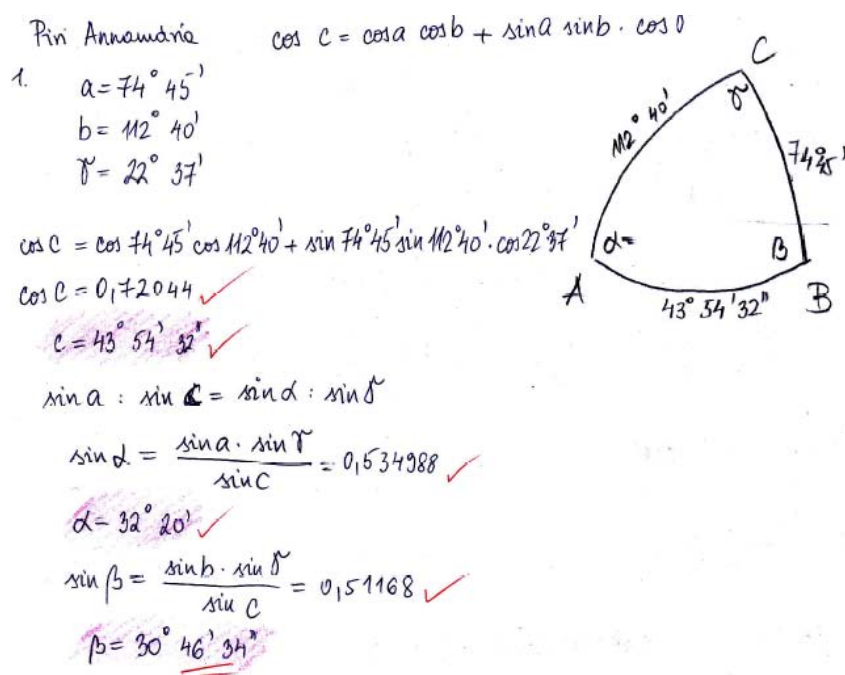 Piri Annamária
cos c = cosa cosb + sina sinb · cosγ
1.
a = 74° 45'
b = 112° 40'
γ = 22° 37'
cos c = cos 74°45' cos 112°40' + sin 74°45' sin 112°40' · cos 22°37'
cos c = 0,72044
c = 43° 54' 32"
sin a : sin c = sin α : sin γ
sin α = sin a · sin γ / sin c = 0,534988
α = 32° 20'
sin β = sin b · sin γ / sin c = 0,51168
β = 30° 46' 34"
C
γ
112° 40'
74°45'
α=
β
A
B
43° 54' 32"